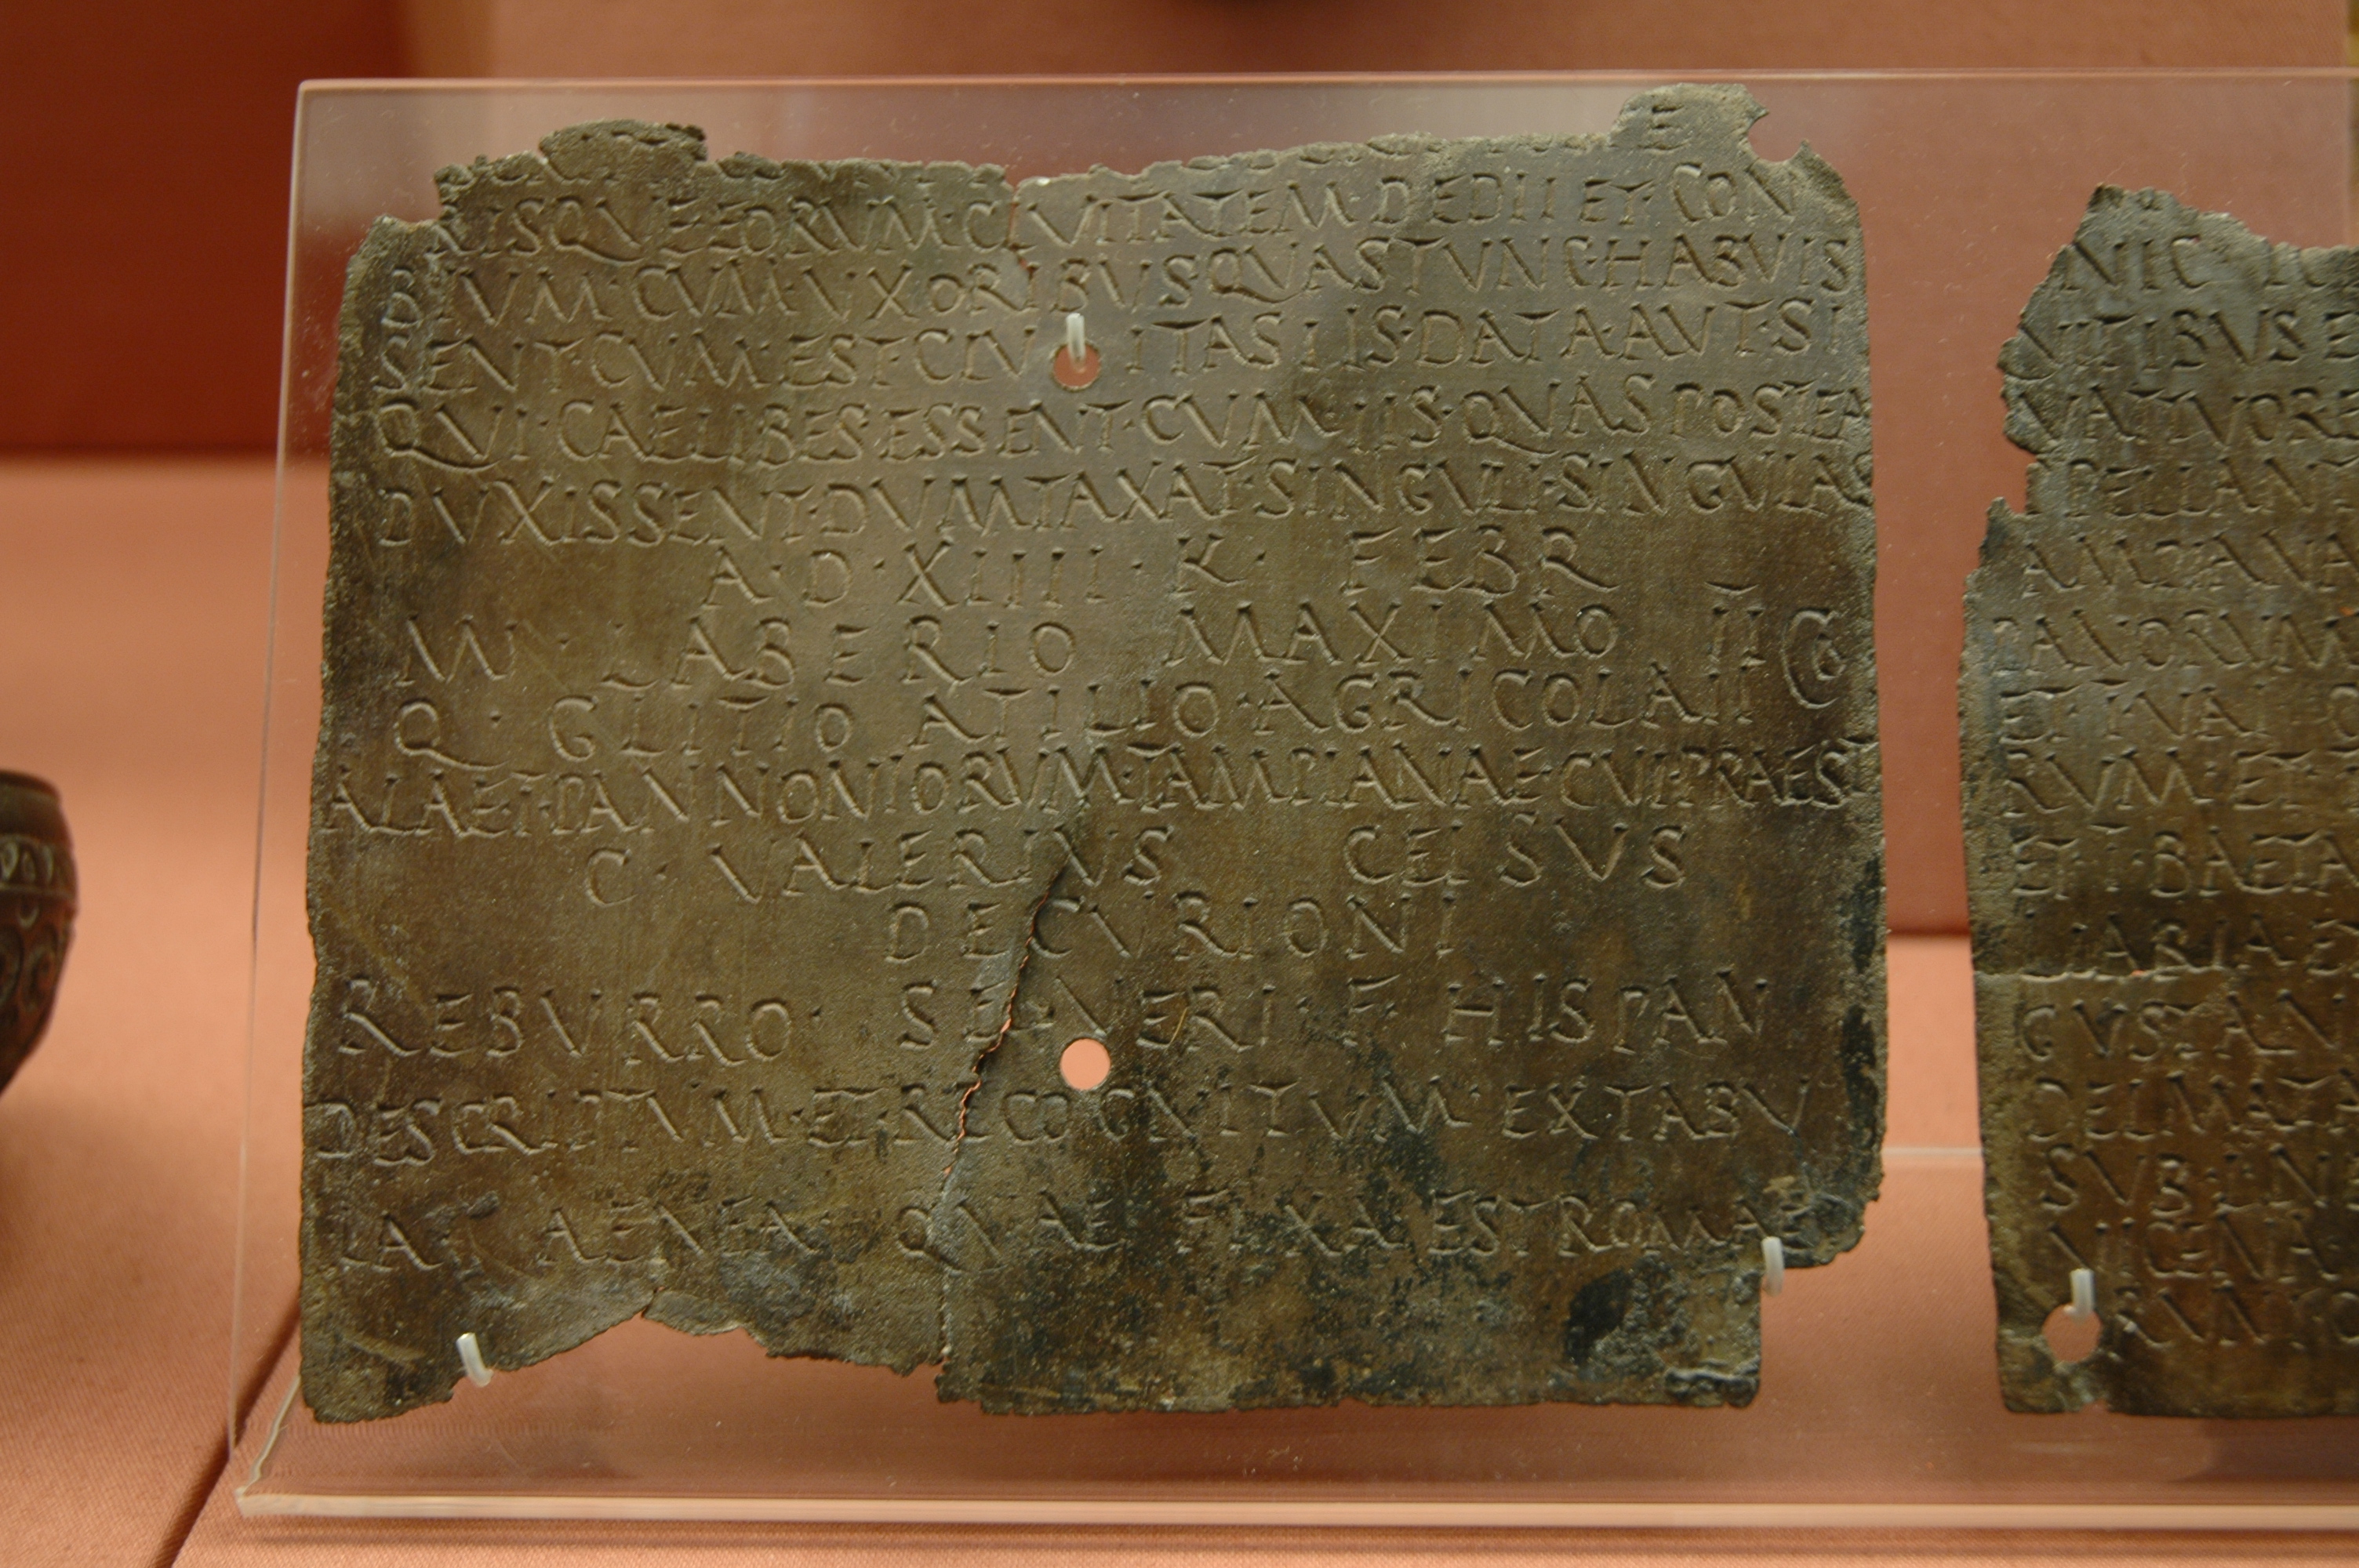 E
RISQVE·EORVM·CIVITATEM·DEDIT ET·CON
BIVM·CVM·VXORIBVS·QVAS TVNC·HABVIS
SENT·CVM·EST·CIVITAS IIS·DATA·AVT·SI
QVI·CAELIBES·ESSENT·CVM·IIS·QVAS POSTEA
DVXISSENT·DVMTAXAT·SINGVLI·SINGVLAS
A·D·XIIII·K· FEBR
M· LABERIO MAXIMO II
COS
Q· GLITIO ATILIO·AGRICOLA II
ALAE·I·PANNONIORVM·TAMPIANAE·CVI·PRAEST
C· VALERIVS CELSVS
DECVRIONI
REBVRRO· SEVERI·F· HISPAN
DESCRIPTVM·ET·RECOGNITVM·EX TABV
LA· AENEA· QVAE FIXA EST ROMAE
NIC
NTIBVS E
VATTVORE
PELLANT
AMPIANA
PANORVM
ET·I·VAI
RVM·ET·
ET·I·BAETA
IARIA·E
GVSTAN
DELMATA
SVB·
VICENA·